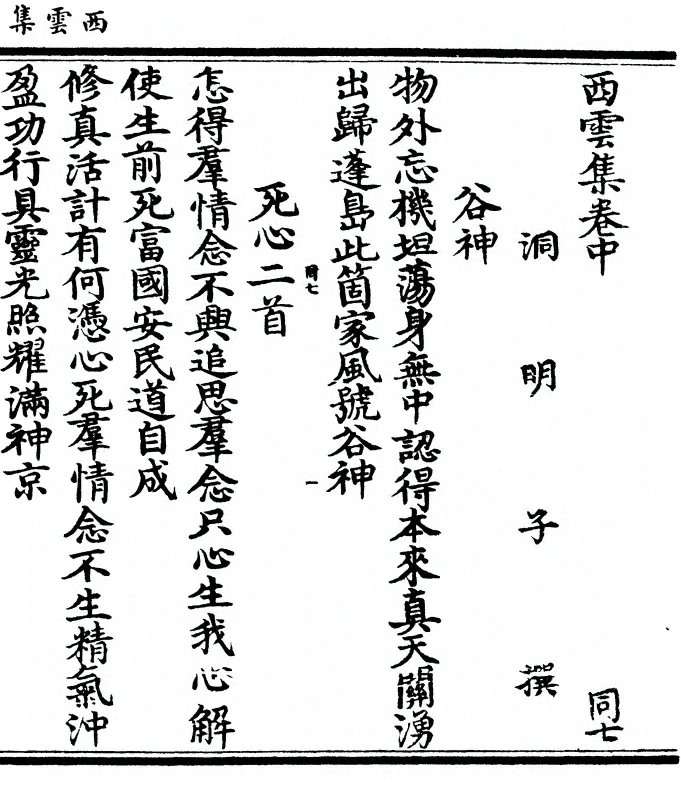 西雲集
西雲集卷中
同七
洞明子撰
谷神
物外忘機坦蕩身無中認得本來真天關湧
出歸蓬島此箇家風號谷神
同七
一
死心二首
怎得羣情念不興追思羣念只心生我心解
使生前死富國安民道自成
修真活計有何憑心死羣情念不生精氣沖
盈功行具靈光照耀滿神京